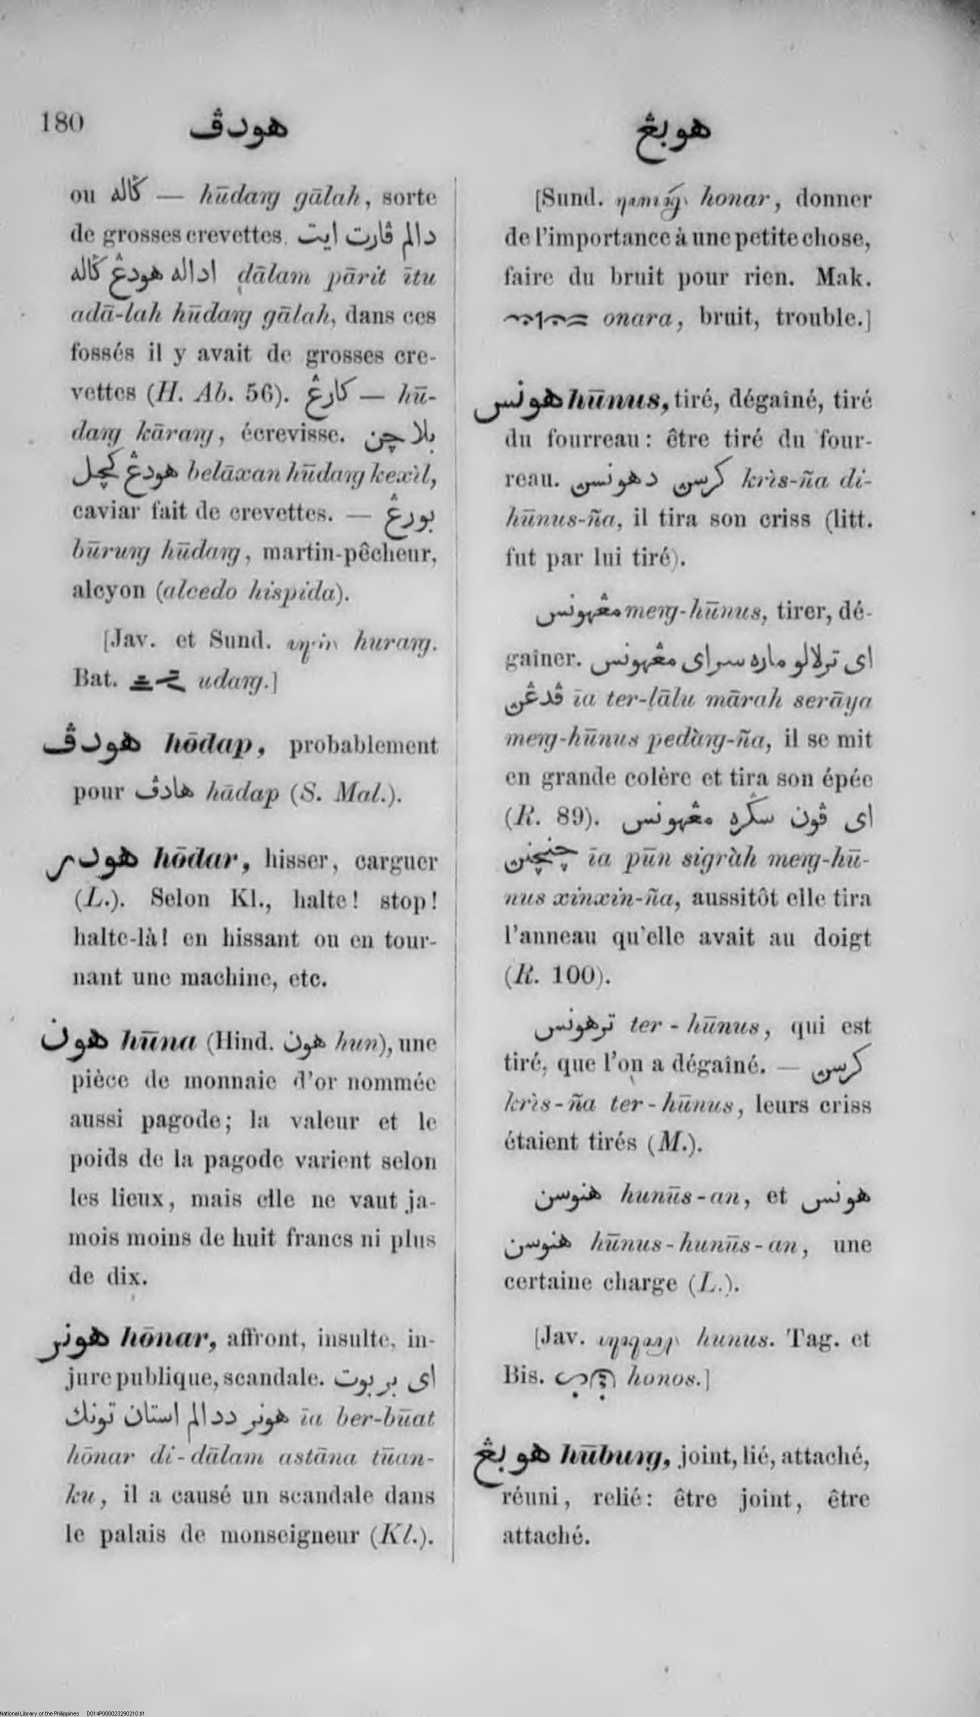 180
هودڤ
هوبڠ
ou ڬاله — hūdaŋ gālah, sorte
de grosses crevettes. دالم ڤارت ايت
اداله هودڠ ڬاله dālam pārit ītu
adā-lah hūdaŋ gālah, dans ces
fossés il y avait de grosses cre-
vettes (H. Ab. 56). كارڠ — hū-
daŋ kāraŋ, écrevisse. بلاچن
هودڠ كچل belāxan hūdaŋ kexìl,
caviar fait de crevettes. — بورڠ
būruŋ hūdaŋ, martin-pêcheur,
alcyon (alcedo hispida).
[Jav. et Sund. huraŋ.
Bat. udaŋ.]
هودڤ hōdap, probablement
pour هادڤ hādap (S. Mal.).
هودر hōdar, hisser, carguer
(L.). Selon Kl., halte! stop!
halte-là! en hissant ou en tour-
nant une machine, etc.
هون hūna (Hind. هون hun), une
pièce de monnaie d'or nommée
aussi pagode; la valeur et le
poids de la pagode varient selon
les lieux, mais elle ne vaut ja-
mois moins de huit francs ni plus
de dix.
هونر hōnar, affront, insulte, in-
jure publique, scandale. اى بربوت
هونر ددالم استان تونك īa ber-būat
hōnar di-dālam astāna tūan-
ku, il a causé un scandale dans
le palais de monseigneur (Kl.).
[Sund. honar, donner
de l'importance à une petite chose,
faire du bruit pour rien. Mak.
onara, bruit, trouble.]
هونس hūnus, tiré, dégaîné, tiré
du fourreau: être tiré du four-
reau. كرسن دهونسن krìs-ña di-
hūnus-ña, il tira son criss (litt.
fut par lui tiré).
مڠهونس meŋ-hūnus, tirer, dé-
gaîner. اى ترلالو ماره سراى مڠهونس
ڤدڠن īa ter-lālu mārah serāya
meŋ-hūnus pedàŋ-ña, il se mit
en grande colère et tira son épée
(R. 89). اى ڤون سڬره مڠهونس
چنچنن īa pūn sigràh meŋ-hū-
nus xinxin-ña, aussitôt elle tira
l'anneau qu'elle avait au doigt
(R. 100).
ترهونس ter-hūnus, qui est
tiré, que l'on a dégaîné. — كرسن
krìs-ña ter-hūnus, leurs criss
étaient tirés (M.).
هنوسن hunūs-an, et هونس
هنوسن hūnus-hunūs-an, une
certaine charge (L.).
[Jav. hunus. Tag. et
Bis. honos.]
هوبڠ hūbuŋ, joint, lié, attaché,
réuni, relié: être joint, être
attaché.
National Library of the Philippines